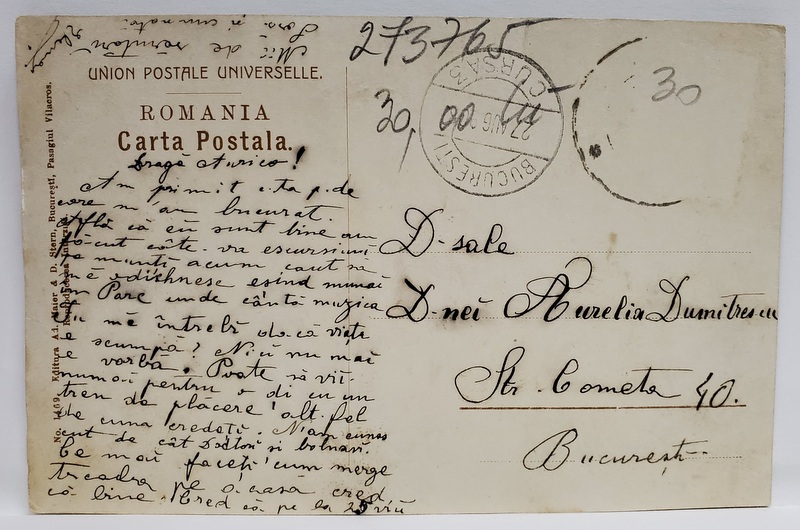 Mii de sărutări
273765
UNION POSTALE UNIVERSELLE.
ROMANIA
Carta Postala.
30,00
30
BUCUREȘTI
27 AUG
CURSA 3
No. 1469. Editura Ad. Maier & D. Stern, București, Pasagiul Vilacros.
Dragă Aurico!
Am primit c-ta p-de
care m'am bucurat.
Află că eu sunt bine am
făcut câte-va escursiuni
la munți acum caut sa
mě odichnesc esind numai
în Parc unde cântă muzica
Tu mě întrebi dacă viața
e scumpă? Nici nu mai
e vorbă. Poate să vii
numai pentru o di cu un
tren de plăcere alt-fel
de cum credeți. N'am cunos
cut de cât Doctori si bolnavi.
Ce mai faceți cum merge
treaba pe acasă cred
că bine. Cred că pe la 25 viu
D-sale
D-nei Aurelia Dumitrescu
Str. Cometa 40.
București